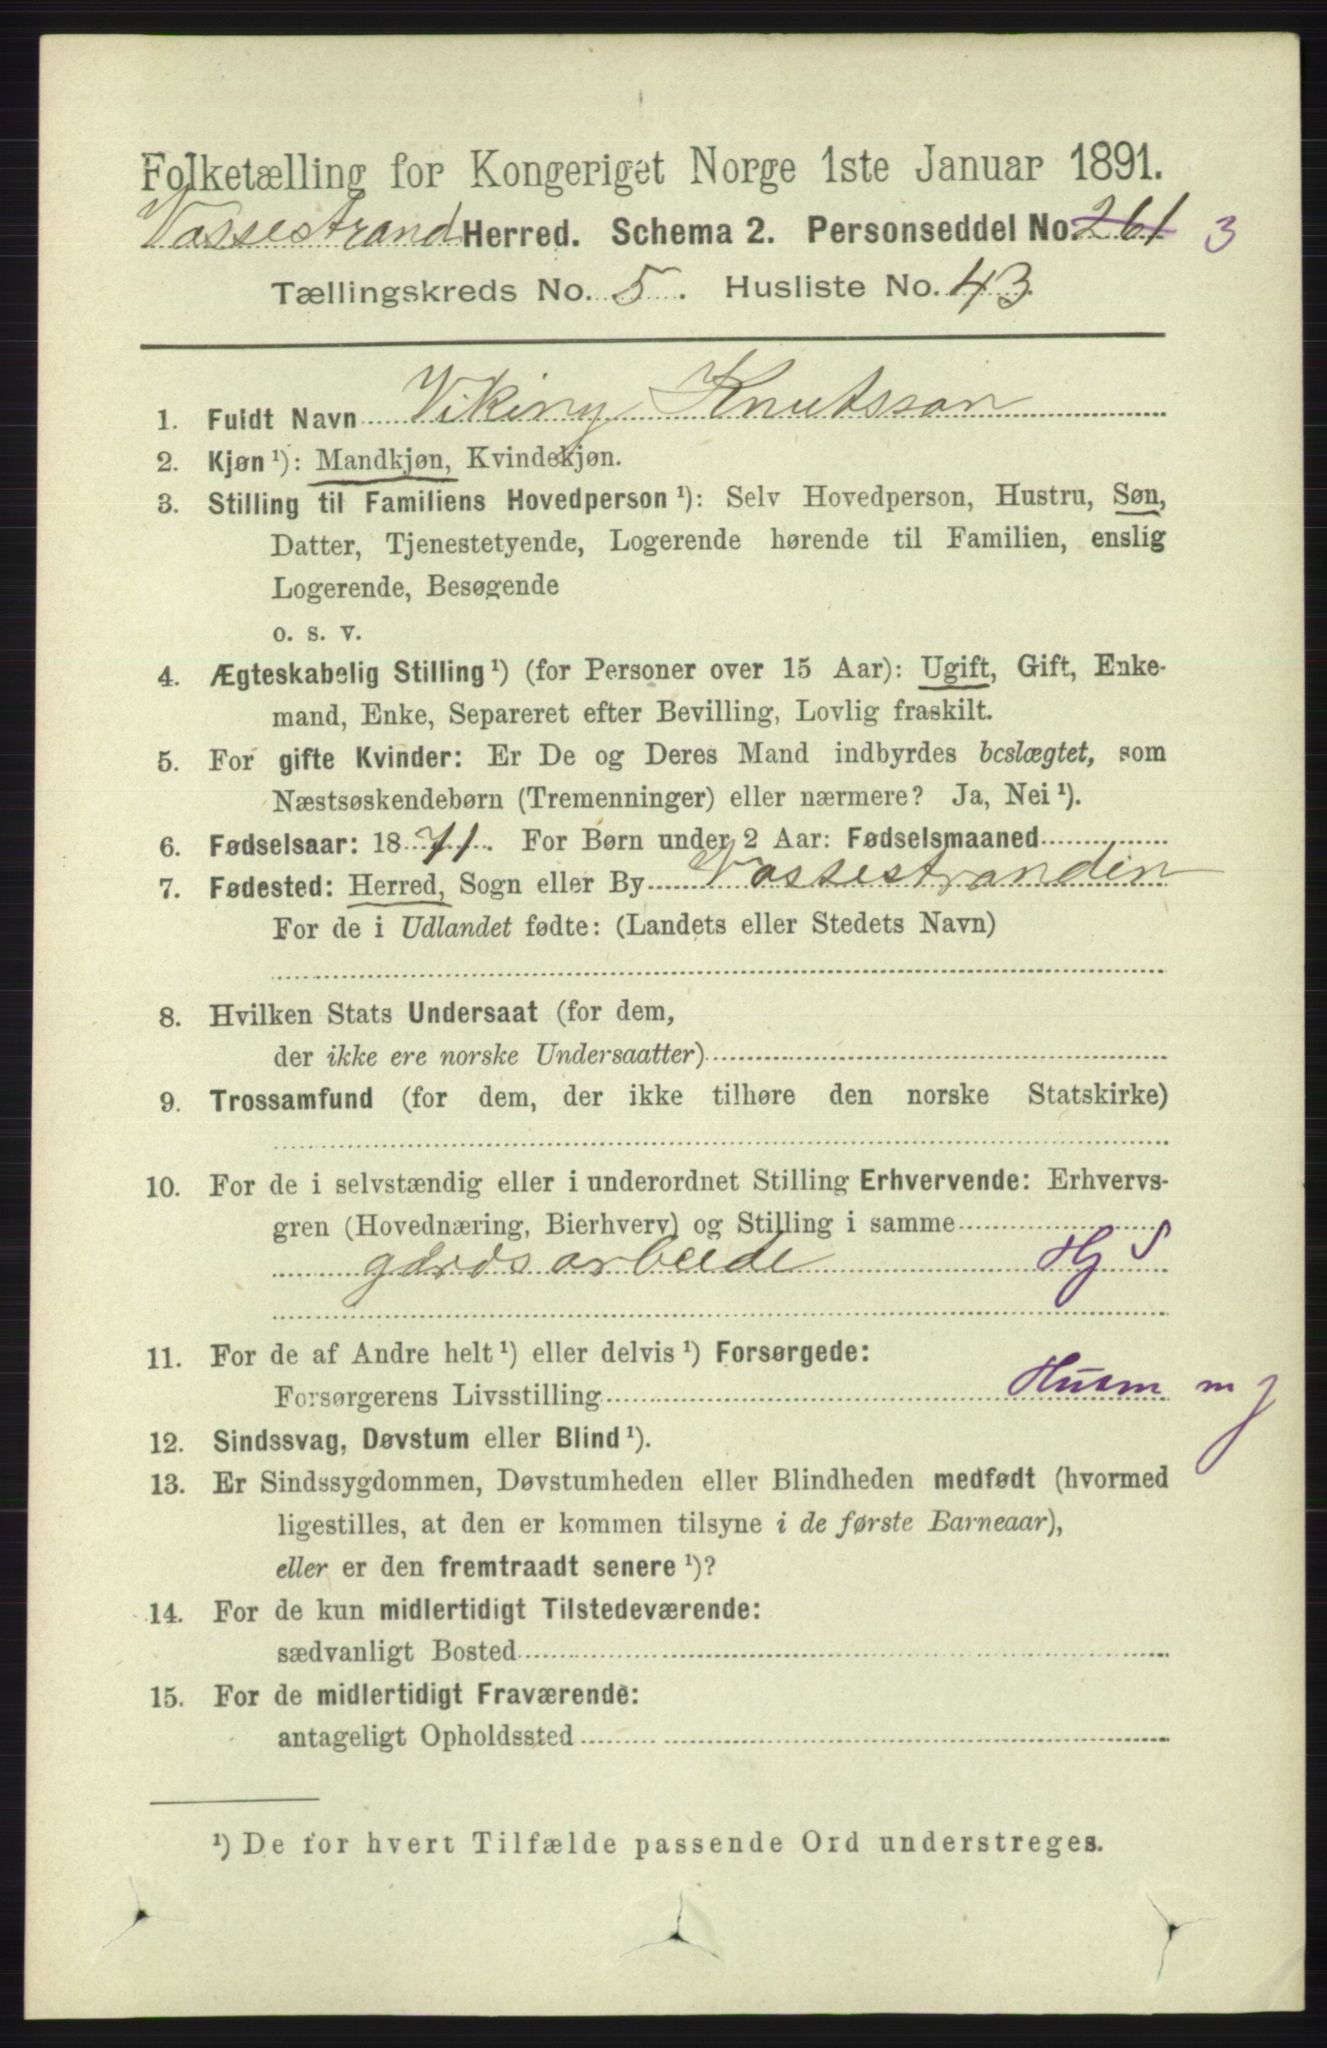 Folketælling for Kongeriget Norge 1ste Januar 1891.
Vossestrand Herred. Schema 2. Personseddel No. 261 3
Tællingskreds No. 5. Husliste No. 43
1. Fuldt Navn Viking Knutsson
2. Kjøn ¹): Mandkjøn, Kvindekjøn.
3. Stilling til Familiens Hovedperson ¹): Selv Hovedperson, Hustru, Søn,
Datter, Tjenestetyende, Logerende hørende til Familien, enslig
Logerende, Besøgende
o. s. v.
4. Ægteskabelig Stilling ¹) (for Personer over 15 Aar): Ugift, Gift, Enke-
mand, Enke, Separeret efter Bevilling, Lovlig fraskilt.
5. For gifte Kvinder: Er De og Deres Mand indbyrdes beslægtet, som
Næstsøskendebørn (Tremenninger) eller nærmere? Ja, Nei ¹).
6. Fødselsaar: 1871. For Børn under 2 Aar: Fødselsmaaned
7. Fødested: Herred, Sogn eller By Vossestranden
For de i Udlandet fødte: (Landets eller Stedets Navn)
8. Hvilken Stats Undersaat (for dem,
der ikke ere norske Undersaatter)
9. Trossamfund (for dem, der ikke tilhøre den norske Statskirke)
10. For de i selvstændig eller i underordnet Stilling Erhvervende: Erhvervs-
gren (Hovednæring, Bierhverv) og Stilling i samme
gårdsarbeide Hj S
11. For de af Andre helt ¹) eller delvis ¹) Forsørgede:
Forsørgerens Livsstilling Husm m j
12. Sindssvag, Døvstum eller Blind ¹).
13. Er Sindssygdommen, Døvstumheden eller Blindheden medfødt (hvormed
ligestilles, at den er kommen tilsyne i de første Barneaar),
eller er den fremtraadt senere ¹)?
14. For de kun midlertidigt Tilstedeværende:
sædvanligt Bosted
15. For de midlertidigt Fraværende:
antageligt Opholdssted
¹) De for hvert Tilfælde passende Ord understreges.